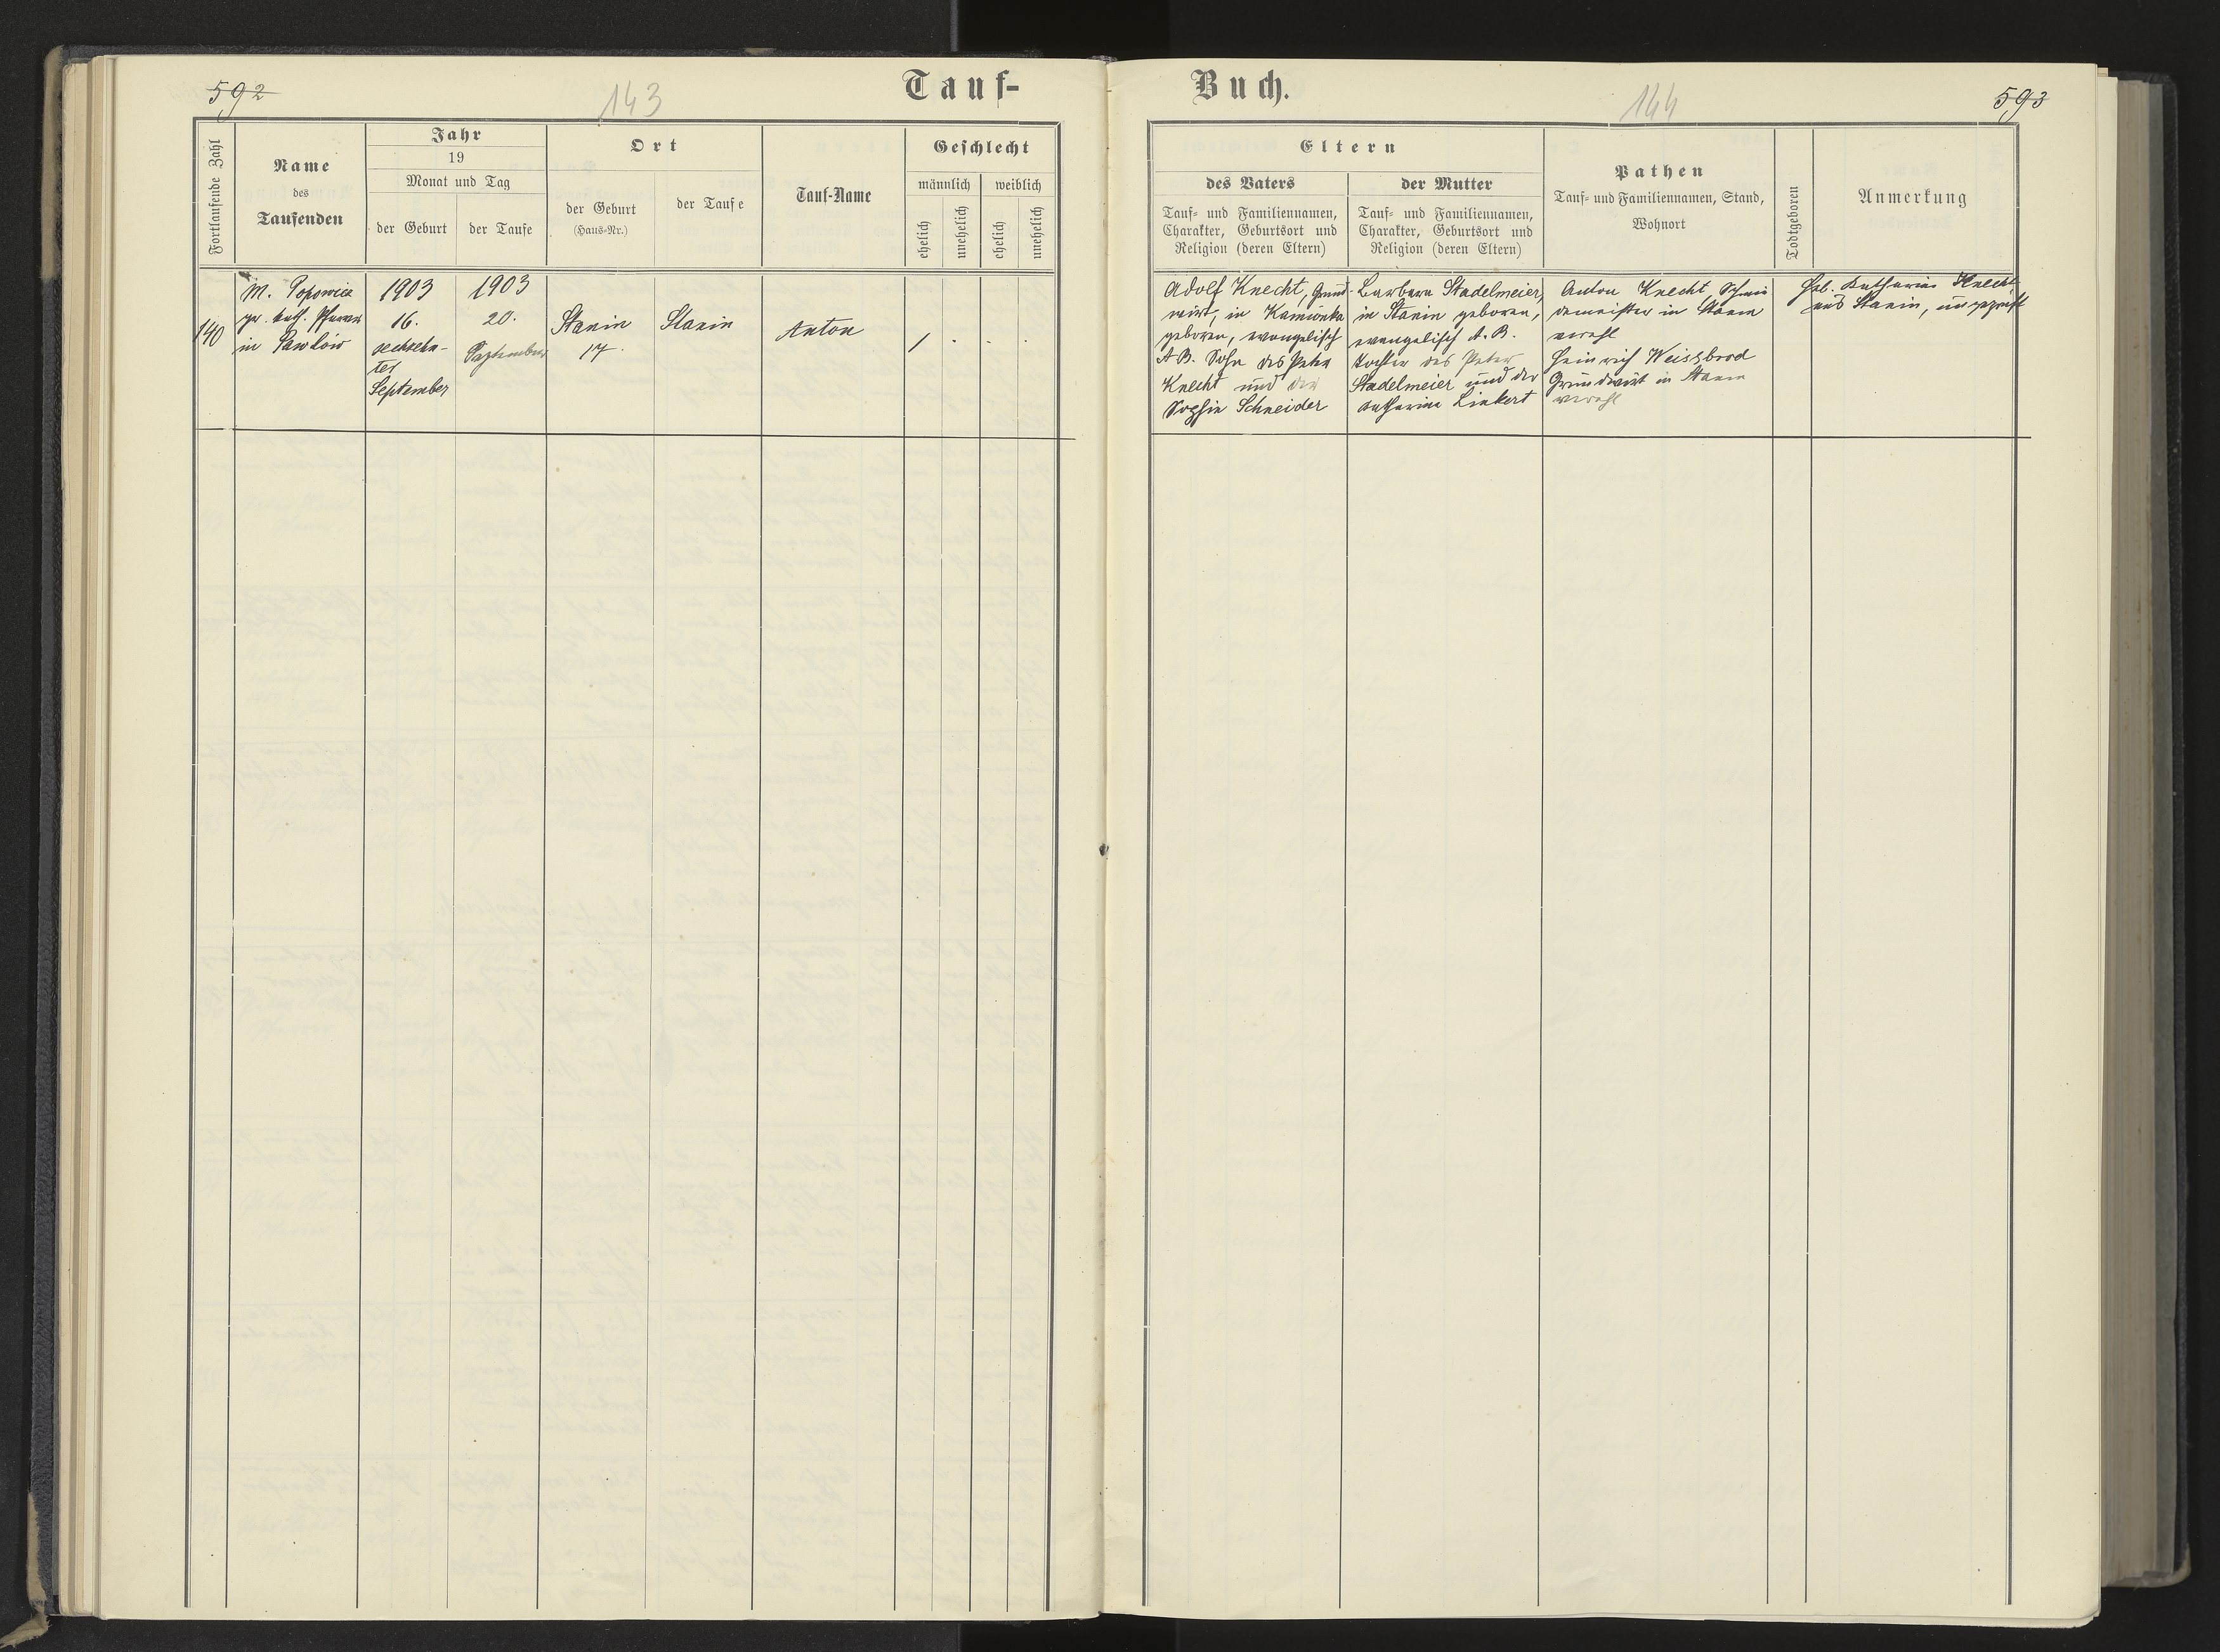 592
143
Tauf-
Fortlaufende Zahl
Name
des
Taufenden
Jahr
19
Monat und Tag
der Geburt
der Taufe
Ort
der Geburt
(Haus-Nr.)
der Taufe
Tauf-Name
Geschlecht
männlich
weiblich
ehelich
unehelich
ehelich
unehelich
140
M. Popowicz
gr. kath. Pfarrer
in Pawłów
1903
16.
sechzehn-
tes
September
1903
20.
September
Stanin
17.
Stanin
Anton
/ . . .
Buch.
144
593
Eltern
des Vaters
Tauf- und Familiennamen,
Charakter, Geburtsort und
Religion (deren Eltern)
der Mutter
Tauf- und Familiennamen,
Charakter, Geburtsort und
Religion (deren Eltern)
Pathen
Tauf- und Familiennamen, Stand,
Wohnort
Todtgeboren
Anmerkung
Adolf Knecht, Grund-
wirt, in Kamionka
geboren, evangelisch
A. B. Sohn des Peter
Knecht und der
Sophie Schneider
Barbara Stadelmeier,
in Stanin geboren,
evangelisch A. B.
Tochter des Peter
Stadelmeier und der
Katharina Linkert
Anton Knecht, Schmie
demeister in Stanin
Heinrich Weissbrod
Grundwirt in Stanin
Heb. Katharina Knecht
aus Stanin, ungeprüft